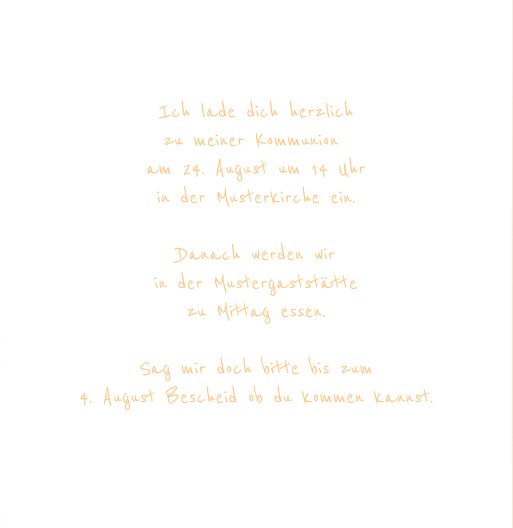 Ich lade dich herzlich
zu meiner Kommunion
am 24. August um 14 Uhr
in der Musterkirche ein.
Danach werden wir
in der Mustergaststätte
zu Mittag essen.
Sag mir doch bitte bis zum
4. August Bescheid ob du kommen kannst.